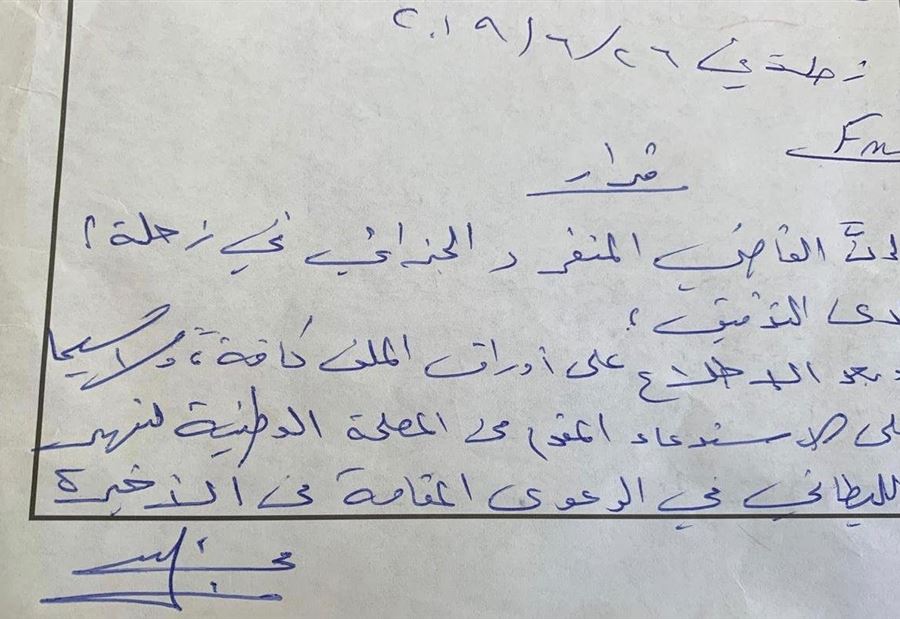 زحلة في ٢٦/٦/٢٠١٩
Fn
قرار
إنّ القاضي المنفرد الجزائي في زحلة؛
لدى التدقيق؛
وبعد الاطلاع على أوراق الملف كافةً، ولاسيما
على الاستدعاء المقدم من المصلحة الوطنية لنهر
الليطاني في الدعوى المقامة من الأخيرة